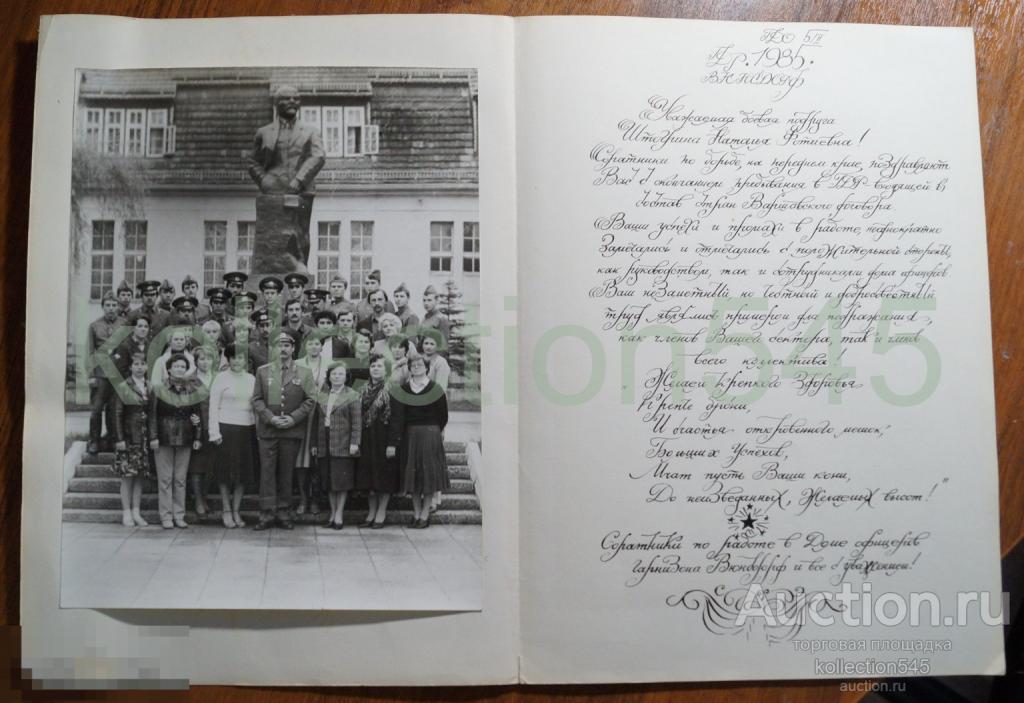 ГДР. 1985.
ВЮНСДОРФ
Уважаемая боевая подруга
Штокрина Наталья Фотиевна!
Соратники по борьбе, на переднем крае, поздравляют
Вас с окончанием пребывания в ГДР входящей в
состав стран Варшовского договора
Ваши успехи и промахи в работе, неоднократно
Замечались и отмечались с положительной стороны,
как руководством, так и сотрудниками дома офицеров.
Ваш незаметный, но честный и добросовестный
труд являлись примером для подражания,
как членов Вашего сектора, так и членов
всего коллектива!
"Желаем крепкого Здоровья
Крепче брони,
И счастья откровенного мешок,
Больших Успехов,
Мчат пусть Ваши кони,
До неизведанных, Желаемых высот!"
Соратники по работе в Доме офицеров
гарнизона Вюнсдорф и все с уважением!
kollection545
Auction.ru
торговая площадка
kollection545
auction.ru